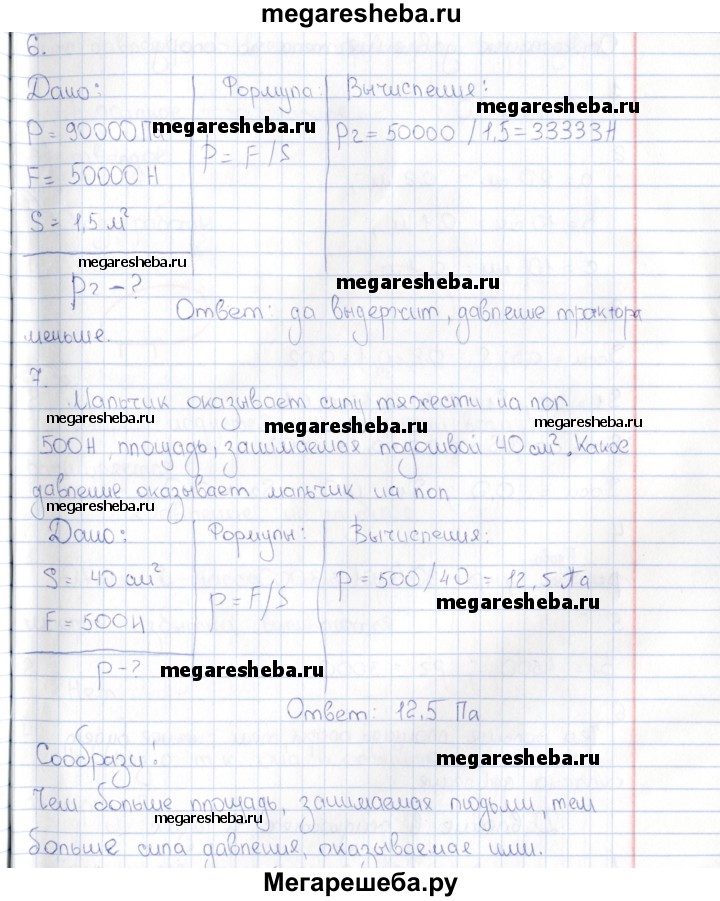 megaresheba.ru
6.
Дано: Формула: Вычисления:
megaresheba.ru
P = 90000 Па megaresheba.ru P2 = 50000 / 1,5 = 33333 Н
P = F/S
F = 50000 Н
S = 1,5 м²
megaresheba.ru
P2 - ? megaresheba.ru
Ответ: да выдержит, давление трактора
меньше.
7.
Мальчик оказывает силу тяжести на пол
megaresheba.ru megaresheba.ru megaresheba.ru
500 Н, площадь, занимаемая подошвой 40 см². Какое
давление оказывает мальчик на пол
megaresheba.ru
Дано: Формулы: Вычисления:
S = 40 см² P = F/S P = 500/40 = 12,5 Па
megaresheba.ru
F = 500 Н
P - ? megaresheba.ru
Ответ: 12,5 Па
Сообрази! megaresheba.ru
Чем больше площадь, занимаемая людьми, тем
megaresheba.ru
больше сила давления, оказываемая ими.
Мегарешеба.ру